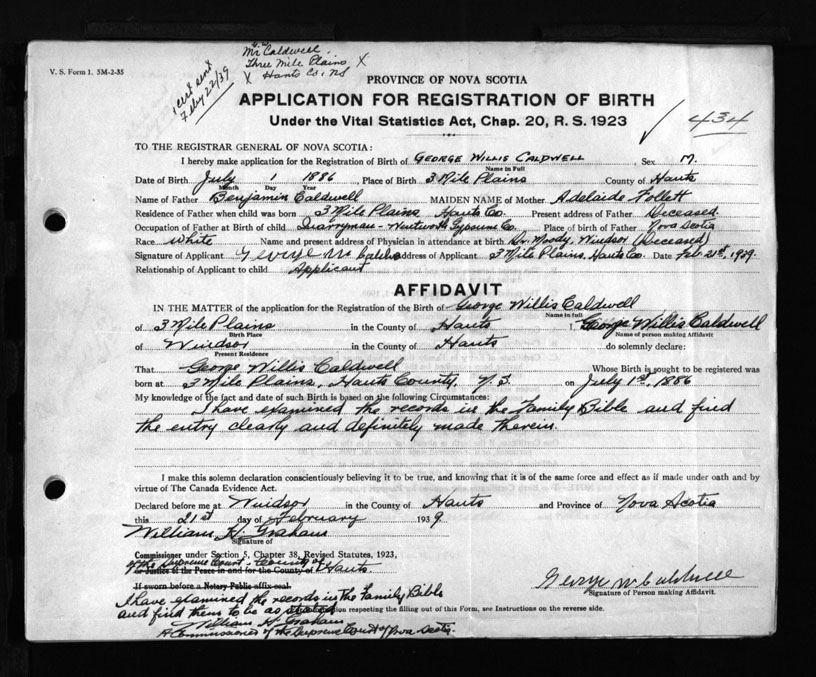 V. S. Form 1. 5M-2-35
Mr Caldwell
Three Mile Plains X
X Hants Co, NS
1 cert sent
Feby 22/39
PROVINCE OF NOVA SCOTIA
APPLICATION FOR REGISTRATION OF BIRTH
Under the Vital Statistics Act, Chap. 20, R. S. 1923
✓ 434
TO THE REGISTRAR GENERAL OF NOVA SCOTIA:
I hereby make application for the Registration of Birth of GEORGE WILLIS CALDWELL, Sex M.
Name in Full
Date of Birth July 1 1886, Place of Birth 3 Mile Plains County of Hants
Month Day Year
Name of Father Benjamin Caldwell MAIDEN NAME of Mother Adelaide Follett
Residence of Father when child was born 3 Mile Plains Hants Co. Present address of Father Deceased.
Occupation of Father at Birth of child Quarryman - Wentworth Gypsum Co. Place of birth of Father Nova Scotia
Race White Name and present address of Physician in attendance at birth Dr. Moody, Windsor (Deceased)
Signature of Applicant George W Caldwell address of Applicant 3 Mile Plains, Hants Co. Date Feb. 21st, 1939.
Relationship of Applicant to child Applicant
AFFIDAVIT
IN THE MATTER of the application for the Registration of the Birth of George Willis Caldwell
Name in full
of 3 Mile Plains in the County of Hants I, George Willis Caldwell
Birth Place Name of person making Affidavit
of Windsor in the County of Hants do solemnly declare:
Present Residence
That George Willis Caldwell Whose Birth is sought to be registered was
born at 3 Mile Plains, Hants County, N. S. on July 1st, 1886
My knowledge of the fact and date of such Birth is based on the following Circumstances:
I have examined the records in the Family Bible and find
the entry clearly and definitely made therein.
I make this solemn declaration conscientiously believing it to be true, and knowing that it is of the same force and effect as if made under oath and by
virtue of The Canada Evidence Act.
Declared before me at Windsor in the County of Hants and Province of Nova Scotia
this 21st day of February 1939
William H. Graham
Signature of
Commissioner under Section 5, Chapter 38, Revised Statutes, 1923,
of the Supreme Court - County of
or Justice of the Peace in and for the County of Hants.
If sworn before a Notary Public affix seal.
George W Caldwell
Signature of Person making Affidavit.
I have examined the records in the Family Bible
and find them to be as stated respecting the filling out of this Form, see Instructions on the reverse side.
William H. Graham
A Commissioner of the Supreme Court of Nova Scotia.